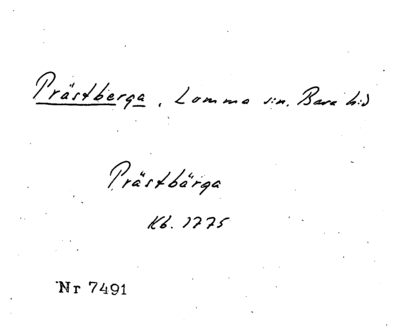 Prästberga, Lomma s:n. Bara h:d
Prästbärga
Kb. 1775
Nr 7491